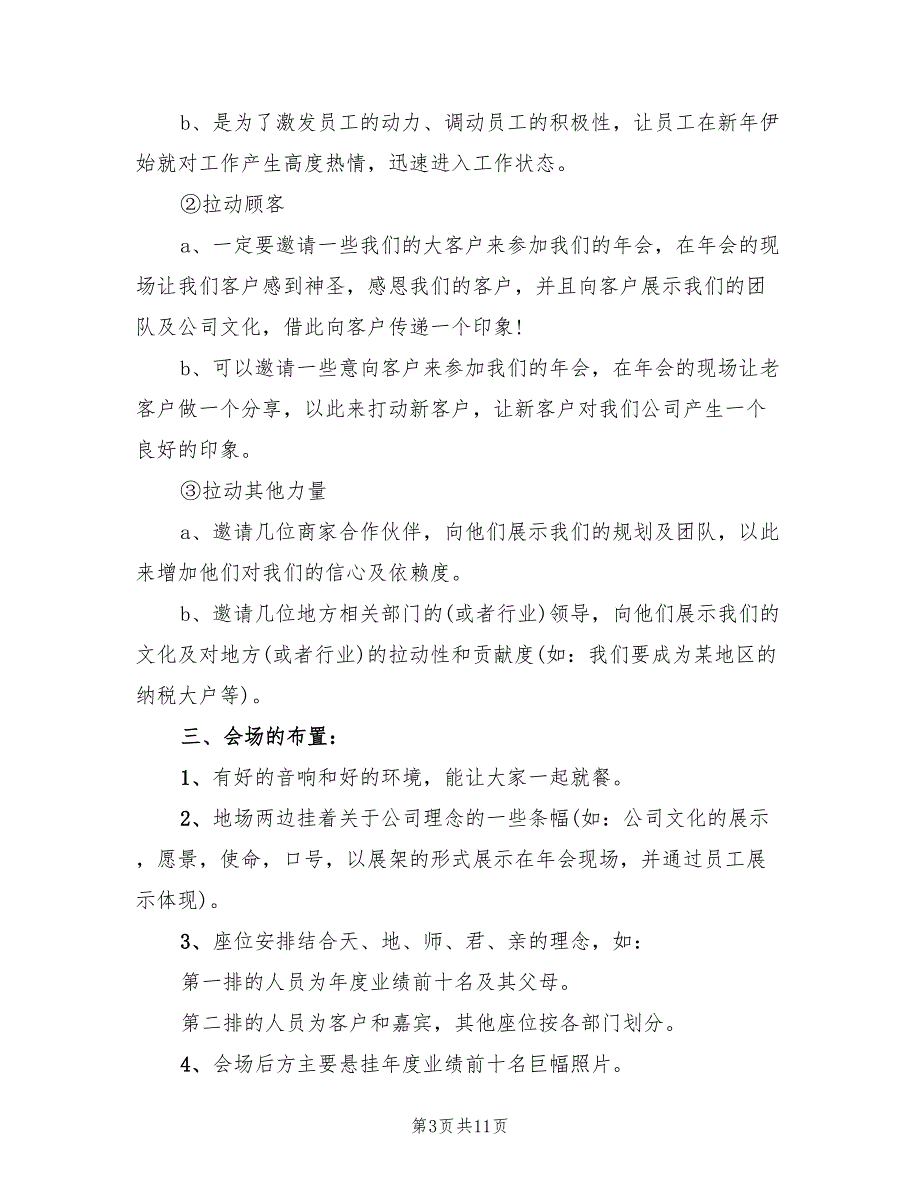 b、是为了激发员工的动力、调动员工的积极性，让员工在新年伊
始就对工作产生高度热情，迅速进入工作状态。
②拉动顾客
a、一定要邀请一些我们的大客户来参加我们的年会，在年会的现
场让我们客户感到神圣，感恩我们的客户，并且向客户展示我们的团
队及公司文化，借此向客户传递一个印象!
b、可以邀请一些意向客户来参加我们的年会，在年会的现场让老
客户做一个分享，以此来打动新客户，让新客户对我们公司产生一个
良好的印象。
③拉动其他力量
a、邀请几位商家合作伙伴，向他们展示我们的规划及团队，以此
来增加他们对我们的信心及依赖度。
b、邀请几位地方相关部门的(或者行业)领导，向他们展示我们的
文化及对地方(或者行业)的拉动性和贡献度(如：我们要成为某地区的
纳税大户等)。
三、会场的布置：
1、有好的音响和好的环境，能让大家一起就餐。
2、地场两边挂着关于公司理念的一些条幅(如：公司文化的展示
，愿景，使命，口号，以展架的形式展示在年会现场，并通过员工展
示体现)。
3、座位安排结合天、地、师、君、亲的理念，如：
第一排的人员为年度业绩前十名及其父母。
第二排的人员为客户和嘉宾，其他座位按各部门划分。
4、会场后方主要悬挂年度业绩前十名巨幅照片。
第3页共11页